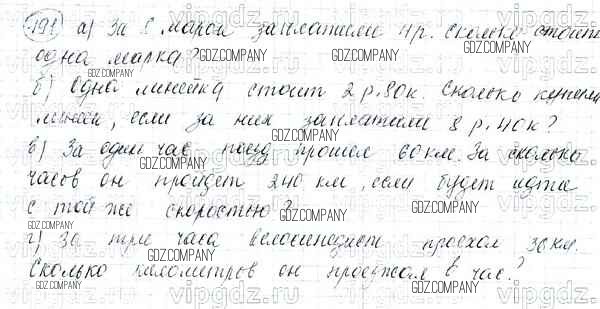 191 а) За 8 марок заплатили 4 р. Сколько стоит
одна марка?
б) Одна линейка стоит 2 р. 80 к. Сколько купили
линеек, если за них заплатили 8 р. 40 к?
в) За один час поезд прошел 60 км. За сколько
часов он пройдет 240 км, если будет идти
с той же скоростью?
г) За три часа велосипедист проехал 36 км.
Сколько километров он проезжал в час?
GDZ.COMPANY
vipgdz.ru